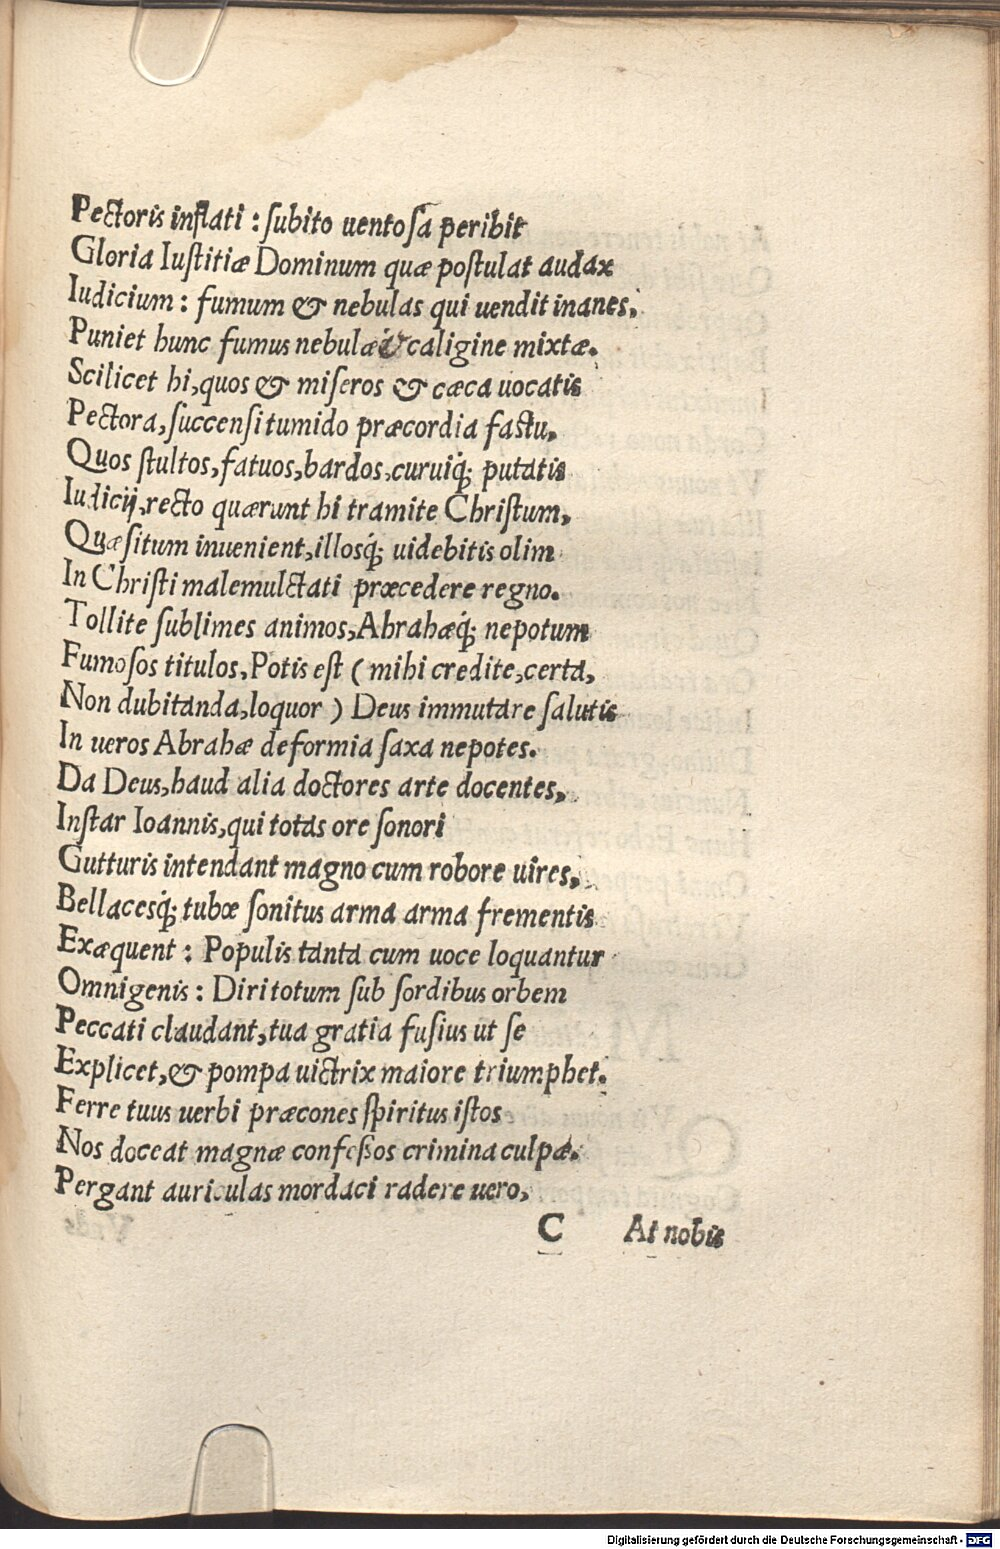 Pectoris inflati : ſubito uentoſa peribit
Gloria Iuſtitiæ Dominum quæ poſtulat audax
Iudicium : fumum & nebulas qui uendit inanes,
Puniet hunc fumus nebulæ & caligine mixtæ.
Scilicet hi, quos & miſeros & cæca uocatis
Pectora, ſuccenſi tumido præcordia faſtu,
Quos ſtultos, fatuos, bardos, curuiq́; putatis
Iudicij, recto quærunt hi tramite Chriſtum,
Quæſitum inuenient, illosq́; uidebitis olim
In Chriſti malemulctati præcedere regno.
Tollite ſublimes animos, Abrahæq́; nepotum
Fumoſos titulos, Potis eſt ( mihi credite, certa,
Non dubitanda, loquor ) Deus immutare ſalutis
In ueros Abrahæ deformia ſaxa nepotes.
Da Deus, haud alia doctores arte docentes,
Inſtar Ioannis, qui totas ore ſonori
Gutturis intendant magno cum robore uires,
Bellacesq́; tubæ ſonitus arma arma frementis
Exæquent : Populis tanta cum uoce loquantur
Omnigenis : Diri totum ſub ſordibus orbem
Peccati claudant, tua gratia fuſius ut ſe
Explicet, & pompa uictrix maiore triumphet.
Ferre tuus uerbi præcones ſpiritus iſtos
Nos doceat magnæ confeſsos crimina culpæ.
Pergant auriculas mordaci radere uero,
C At nobis
Digitalisierung gefördert durch die Deutsche Forschungsgemeinschaft - DFG